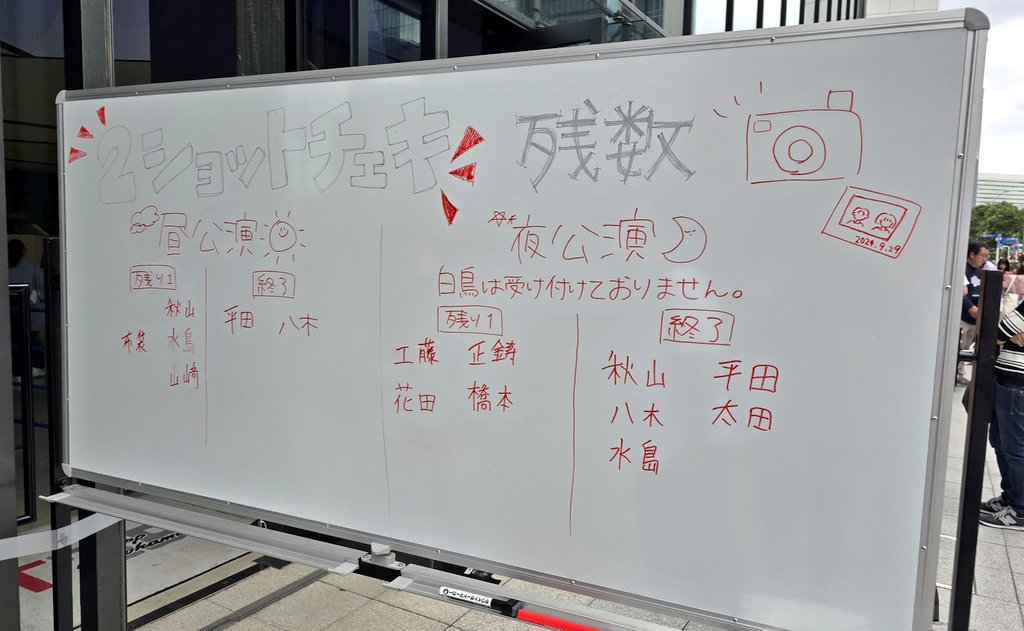 2ショットチェキ 残数
昼公演
残り1
秋山
布袋 水島
山崎
終了
平田 八木
夜公演
白鳥は受け付けておりません。
残り1
工藤 正鋳
花田 橋本
終了
秋山 平田
八木 太田
水島
2024.9.29